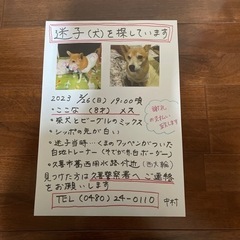 迷子(犬)を探しています
2023 2/26(日) 19:00頃
・ここな (8才) メス
・柴犬とビーグルのミックス
・シッポの先が白い
・迷子当時…くまのワッペンがついた
白地トレーナー(そでが赤白ボーダー)
・久喜市葛西用水路付近
見つけた方は久喜警察署へご連絡
をお願いします
TEL (0480) 24-0110
中村